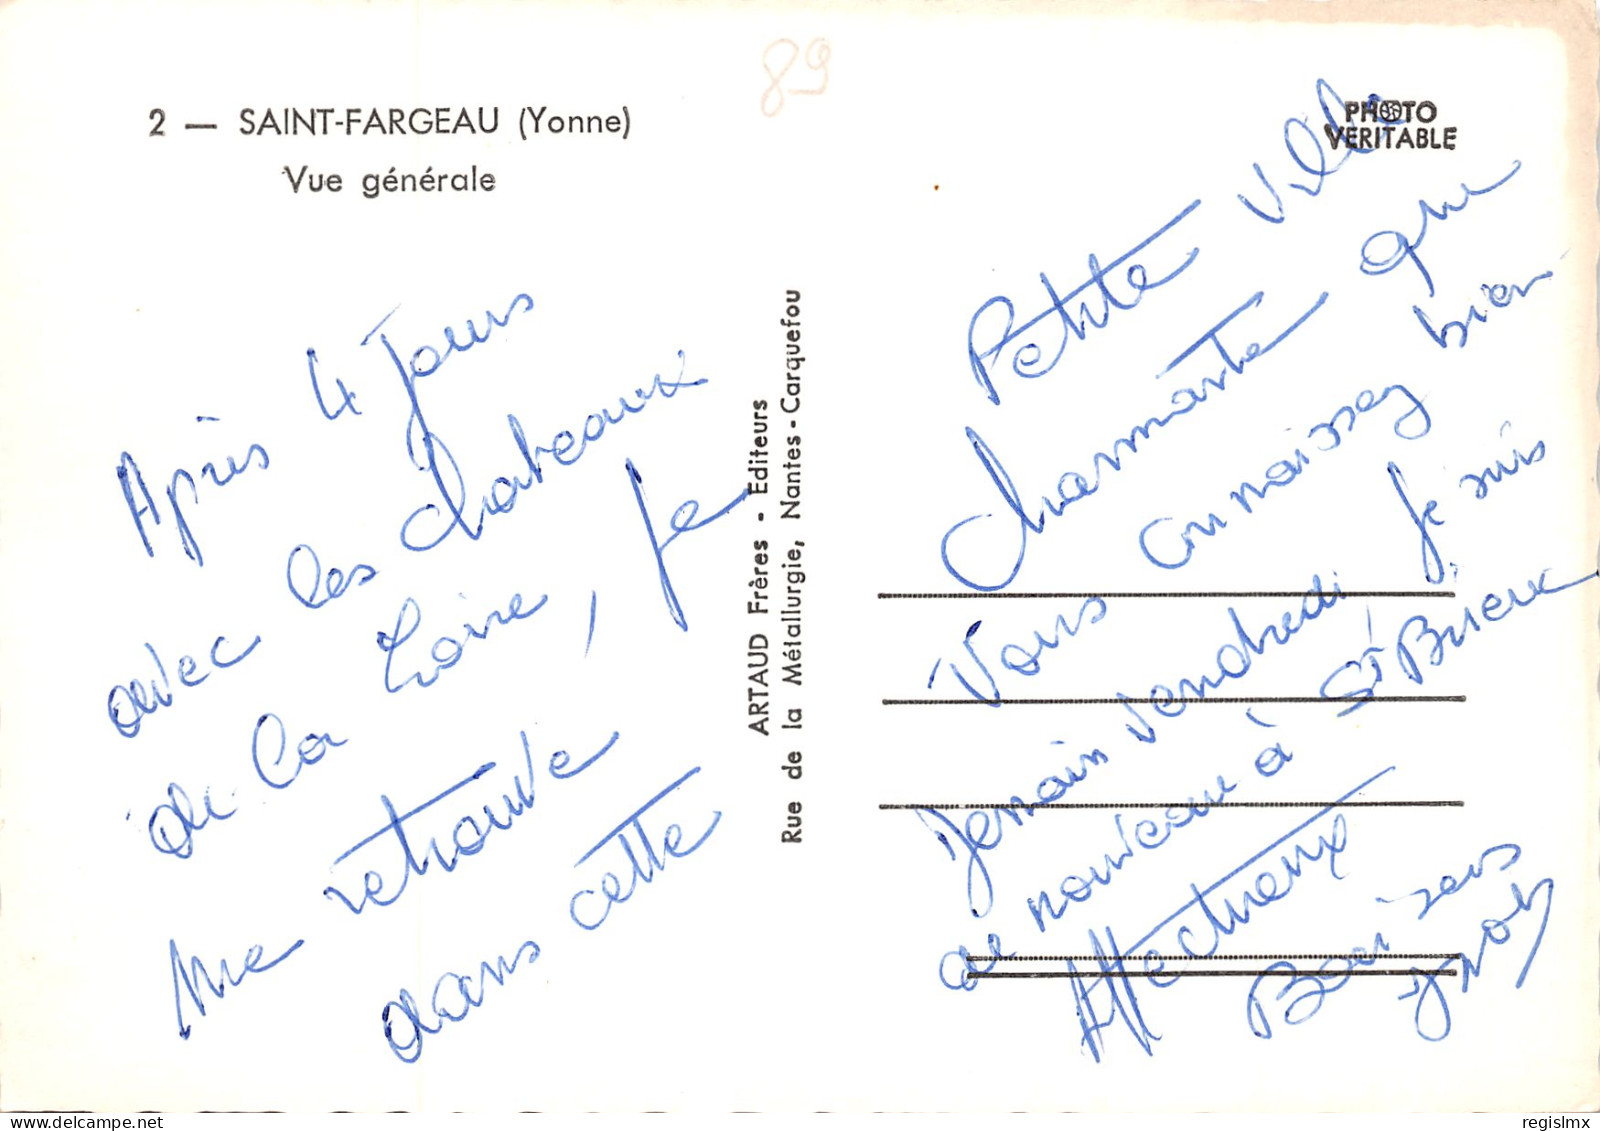 89
2 — SAINT-FARGEAU (Yonne)
Vue générale
PHOTO
VERITABLE
Après 4 Jours
avec les chateaux
de la Loire, je
me retrouve
dans cette
ARTAUD Frères - Editeurs
Rue de la Métallurgie, Nantes - Carquefou
Petite Ville
charmante que
Vous connaissez bien
Demain Vendredi, Je suis
de nouveau à St Brieux
Affectueux
Baisers
regislmx